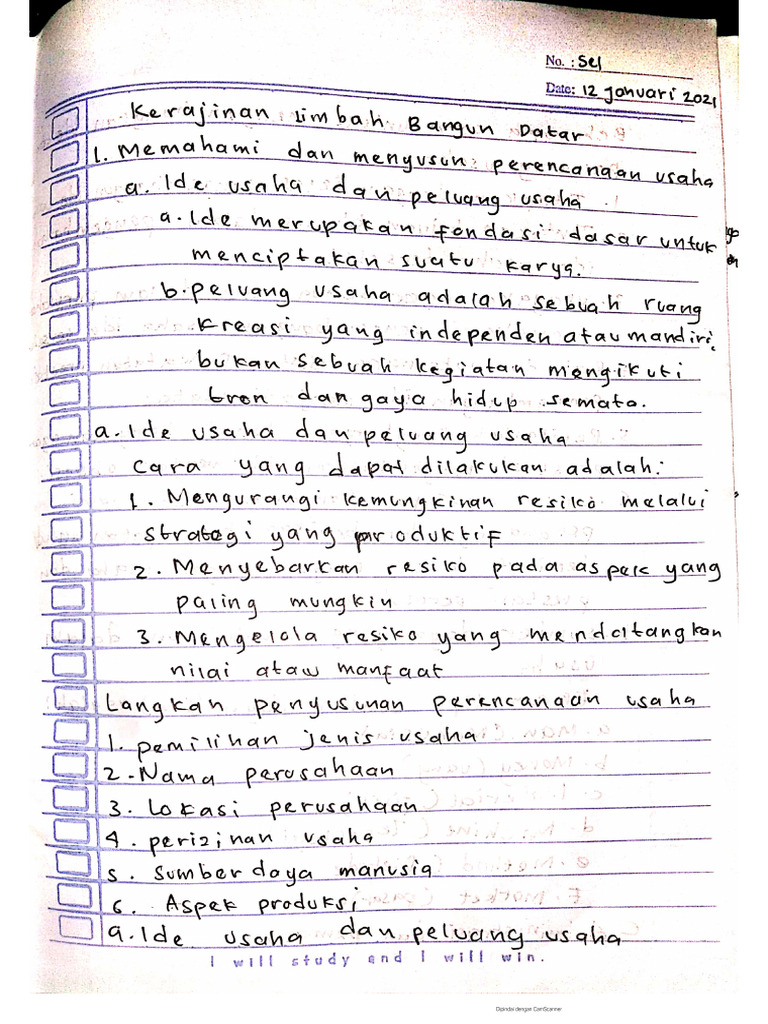 No. : Sel
Date: 12 Januari 2021
Kerajinan limbah Bangun Datar
1. Memahami dan menyusun perencanaan usaha
a. Ide usaha dan peluang usaha
a. Ide merupakan fondasi dasar untuk
menciptakan suatu karya.
b. peluang usaha adalah sebuah ruang
kreasi yang independen atau mandiri,
bukan sebuah kegiatan mengikuti
tren dan gaya hidup semata.
a. Ide usaha dan peluang usaha
Cara yang dapat dilakukan adalah:
1. Mengurangi kemungkinan resiko melalui
strategi yang produktif
2. Menyebarkan resiko pada aspek yang
paling mungkin
3. Mengelola resiko yang mendatangkan
nilai atau manfaat
Langkah penyusunan perencanaan usaha
1. pemilihan jenis usaha
2. Nama perusahaan
3. Lokasi perusahaan
4. perizinan usaha
5. Sumber daya manusia
6. Aspek produksi
a. Ide usaha dan peluang usaha
I will study and I will win.
Dipindai dengan CamScanner